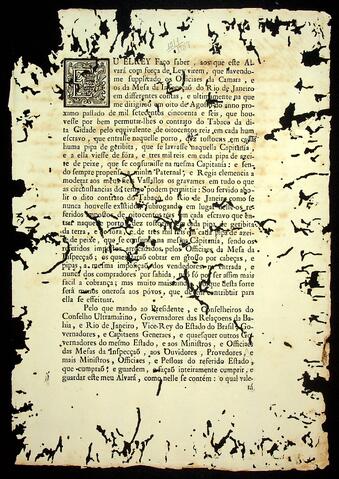 EU ELREY Faço saber, aos que este Al-
vará com força de Ley virem, que havendo-
me supplicado os Officiaes da Camara, e
os da Mesa da Inspecção do Rio de Janeiro
em differentes contas, e ultimamente na que
me dirigirão em oito de Agosto do anno pro-
ximo passado de mil setecentos cincoenta e seis, que hou-
vesse por bem permutar-lhes o contrato do Tabaco da di-
ta Cidade pelo equivalente de oitocentos reis, em cada hum
escravo, que entrasse naquelle porto, dez tostoens, em cada
huma pipa de geribita, que se lavrasse naquella Capitanîa,
e a ella viesse de fóra, e tres mil reis em cada pipa de azei-
te de peixe, que se consumisse na mesma Capitanîa; e sen-
do sempre proprio da minha Paternal, e Regia clemencia
moderar aos meus Vassallos os gravames, em tudo o que
as circunstancias do tempo podem permittir: Sou servido abo-
lir o dito contrato do Tabaco do Rio de Janeiro como se
nunca houvesse existido, em lugar os re-
feridos impostos, de oitocentos reis em cada escravo que en-
trar naquelle porto, dez tostoens em pipa de geribita
da terra, e de fóra, e de tres mil reis em cada pipa de azei-
te de peixe, que se consumir na mesma Capitanîa, sendo os
referidos impostos arrecadados pelos Officiaes da Mesa da
Inspecção; os quaes o farão cobrar em grosso por cabeças, e
pipas, a mesma imposição dos vendedores por entrada, e
nunca dos compradores por sahida, não só por ser assim mais
facil a cobrança; mas muito mais porque desta forte
será menos onerosa aos póvos, que della contribuir para
ella se effeituar.
Pelo que mando ao Presidente, e Conselheiros do
Conselho Ultramarino, Governadores das Relaçoens da Ba-
hia, e Rio de Janeiro, Vice-Rey do Estado do Brasil, Go-
vernadores, e Capitaens Generaes, e quaesquer outros Go-
vernadores do mesmo Estado, e aos Ministros, e Officiaes
das Mesas da Inspecção, aos Ouvidores, Provedores, e
mais Ministros, Officiaes, e Pessoas do referido Estado,
que cumprão, e guardem, e fação inteiramente cumprir, e
guardar este meu Alvará, como nelle se contém: o qual vale-
rá